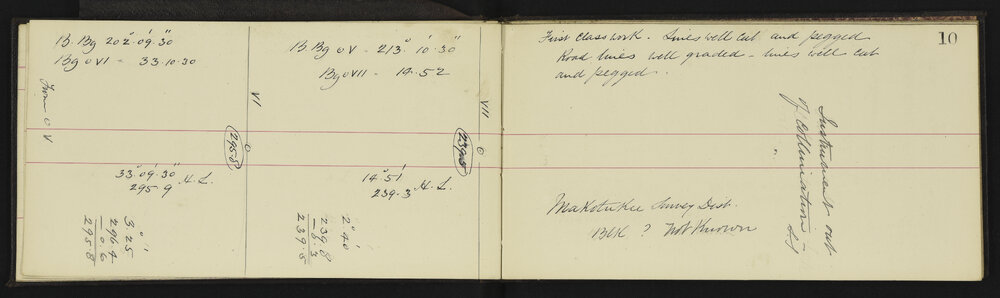 B. Bg 202°·09'·30"
Bg o VI - 33·10·30
From o V
VI
o
295·8
33°·09'·30"
295·9 H.L.
3°·25'
296·4
— 0·6
295·8
B. Bg o V - 213° · 10' · 30"
Bg o VII - 14·52
VIII
o
239·5
14°·51'
239·3 H.L.
2°·40'
239·8
—0·3
239·5
10
First class work - Lines well cut and pegged
Road lines well graded - lines well cut
and pegged.
Instrument out
of collimation -
Makotuku Survey Dist.
Blk ? Not Known